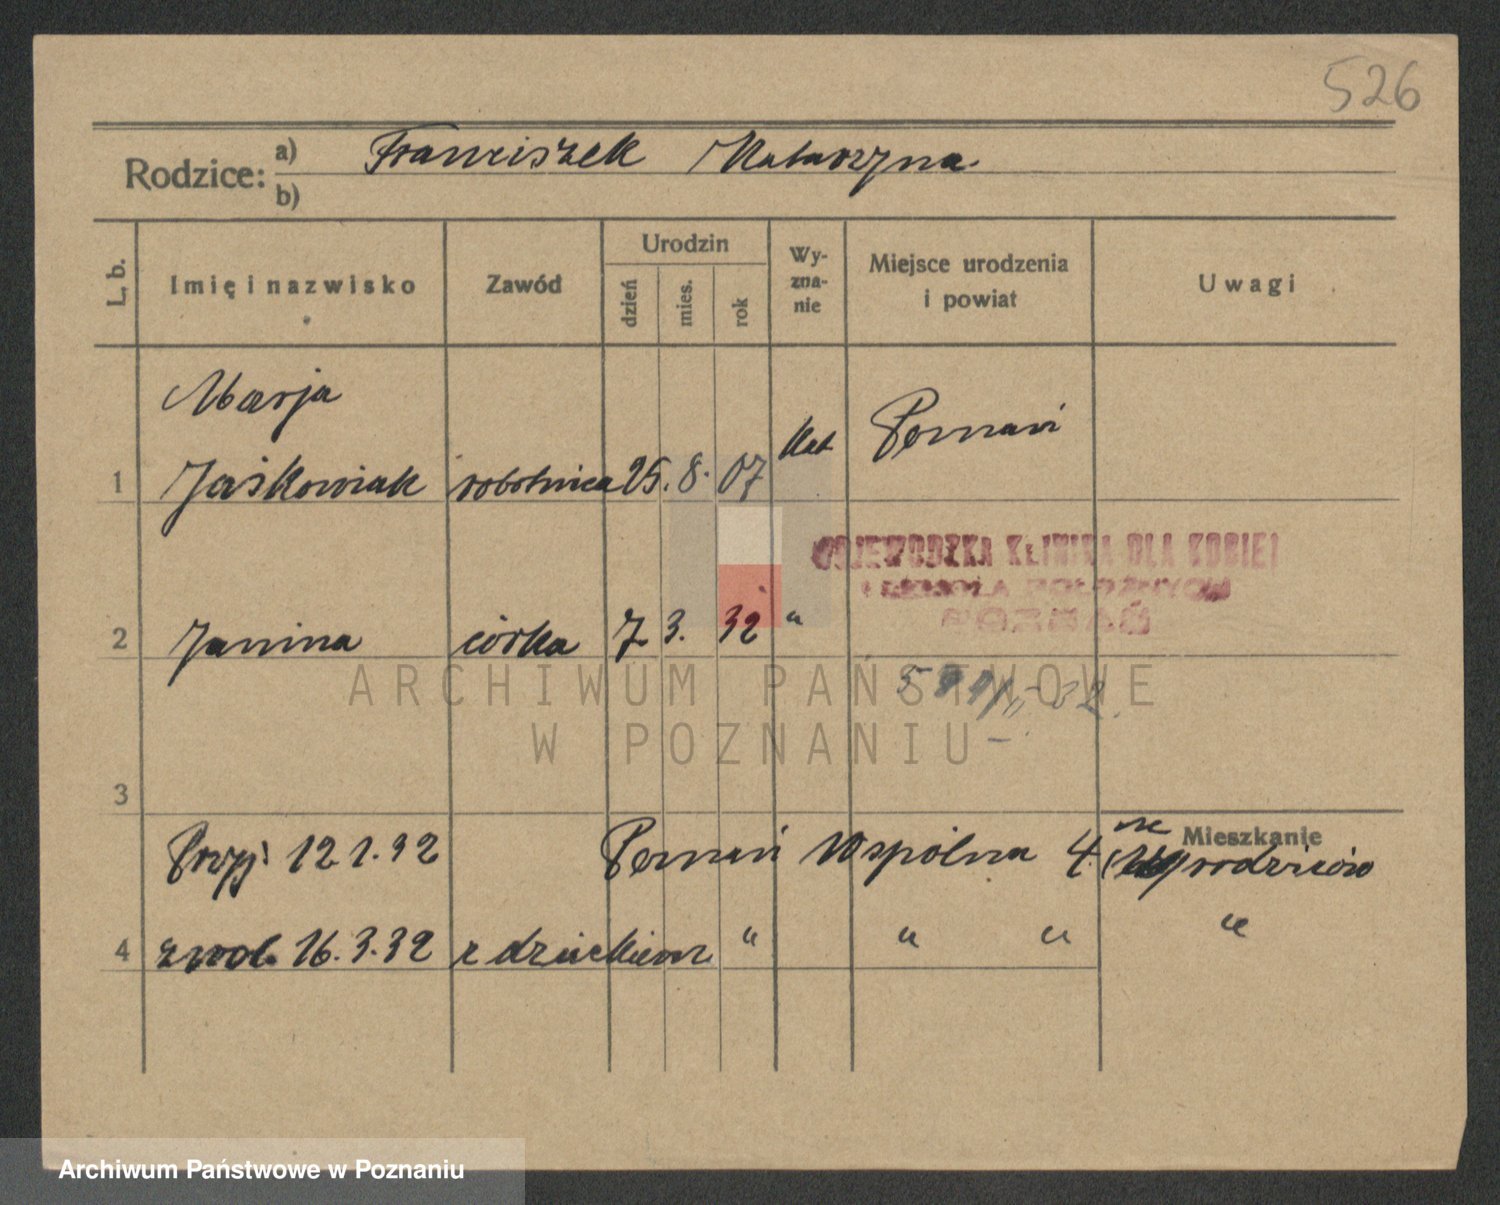 526
Rodzice: a) Franciszek Katarzyna
b)
L. b. Imię i nazwisko Zawód Urodzin dzień mies. rok Wy-zna-nie Miejsce urodzenia i powiat Uwagi
Marja
1 Jaśkowiak robotnica 25. 8. 07 Kat Poznań
WOJEWÓDZKA KLINIKA DLA KOBIET
I SZKOŁA POŁOŻNYCH
POZNAŃ
2 Janina córka 7 3. 32 "
ARCHIWUM PAŃSTWOWE
W POZNANIU
3
Mieszkanie
Przyj: 12 1. 32 Poznań Wspólna 4. rodziców
4 zwol. 16. 3. 32 z dzieckiem " " " "
Archiwum Państwowe w Poznaniu